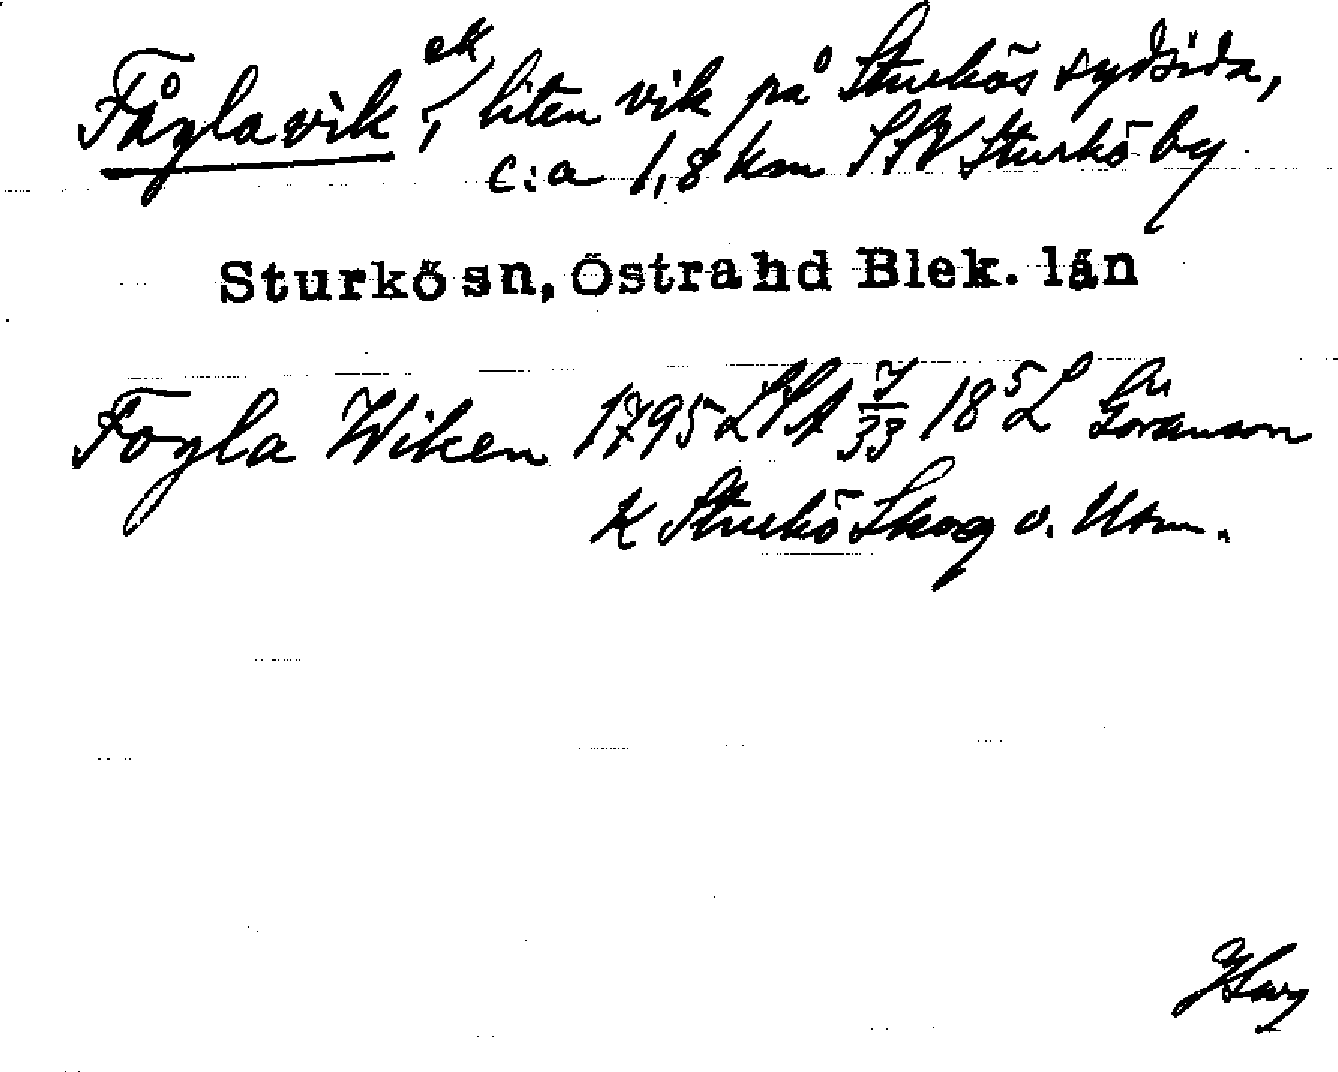 Fåglavik, ek, liten vik på Sturkös sydsida,
c:a 1,8 km SSV Sturkö by.
Sturkö sn, Östra hd Blek. län
Fogla Wiken 1795 LSA 7/33 18⁵ L Göransson
K Sturkö Skog o. Utm.